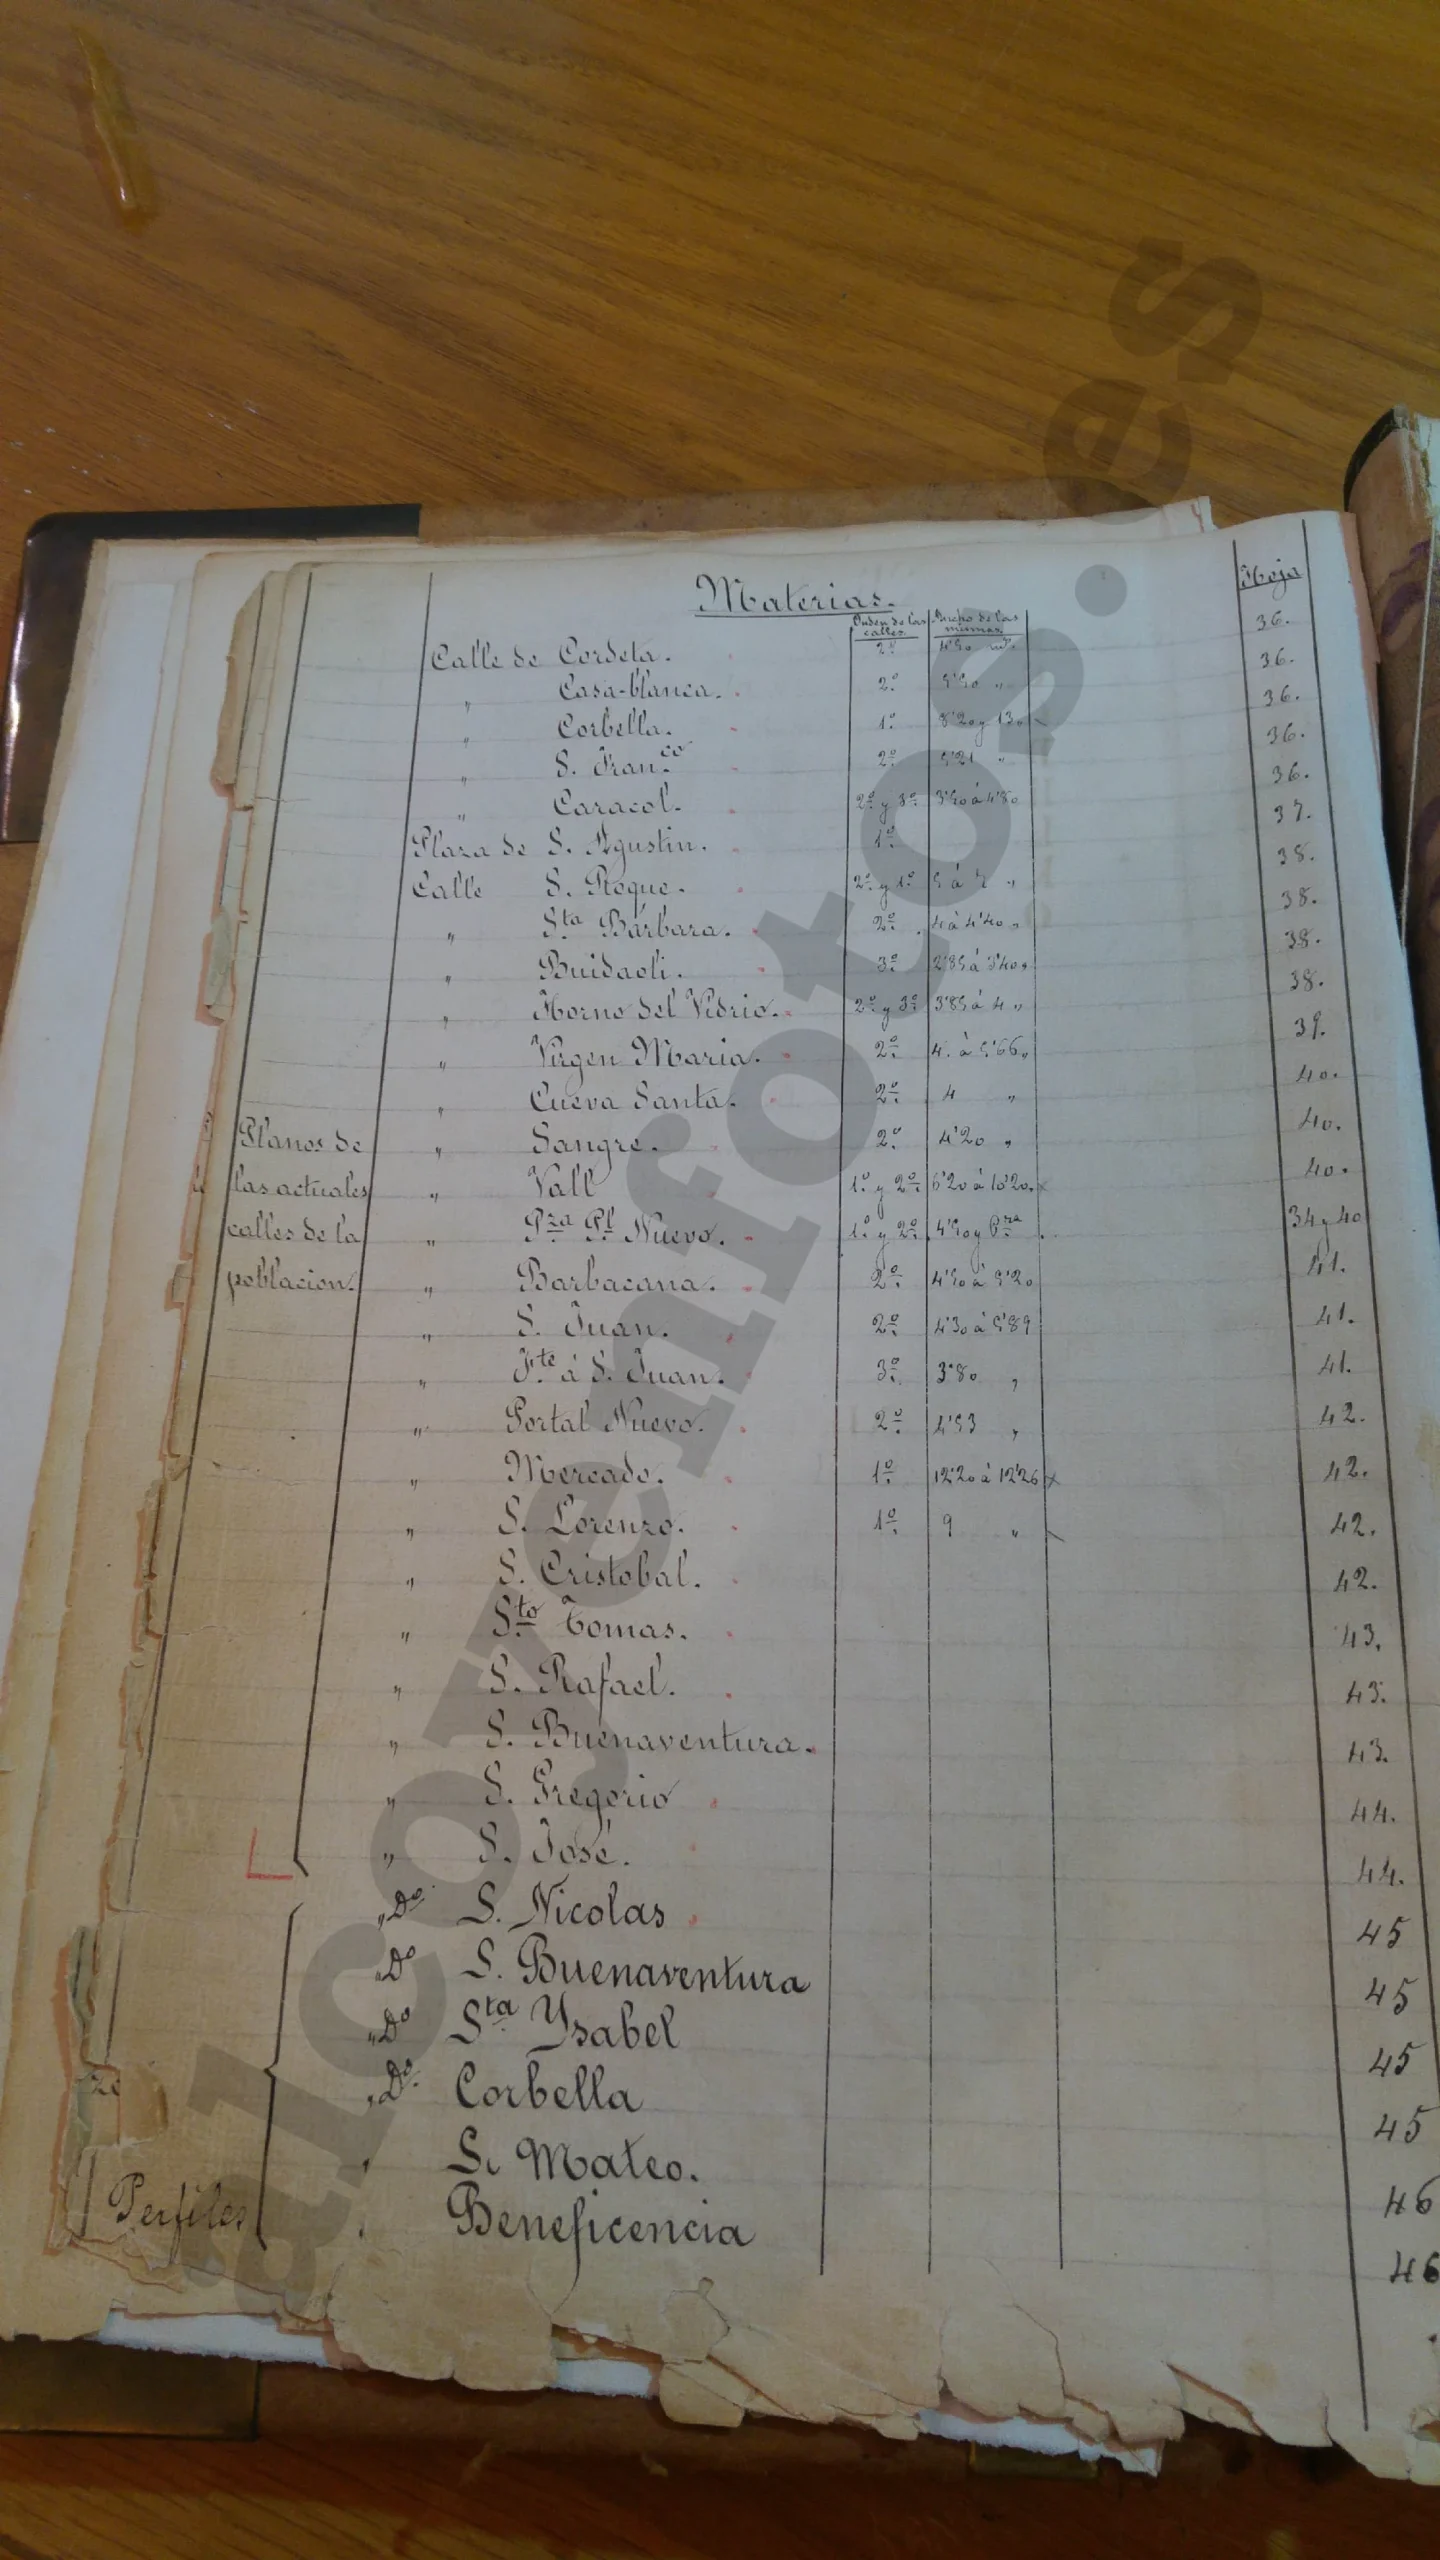 Materias.
Hoja
Orden de las calles. Ancho de las mismas.
Calle de Cordeta. 2º 4'50 mt. 36.
„ Casa-blanca. 2º 5'50 „ 36.
„ Corbella. 1º 8'20 y 130 36.
„ S. Franco 2º 5'21 „ 36.
„ Caracol. 2º y 3º 3'50 á 4'80 36.
Plaza de S. Agustin. 1º 37.
Calle S. Roque. 2º y 1º 5 á 7 „ 38.
„ Sta Bárbara. 2º 4 á 4'40 „ 38.
„ Buidaoli. 3º 2'85 á 3'40 „ 38.
„ Horno del Vidrio. 2º y 3º 3'85 á 4 „ 38.
„ Virgen Maria. 2º 4. á 5'66 „ 39.
„ Cueva Santa. 2º 4 „ 40.
Planos de „ Sangre. 2º 4'20 „ 40.
las actuales „ Vall 1º y 2º 6'20 á 10'20. 40.
calles de la „ Pza Pl Nuevo. 1º y 2º 4'50 y 34 y 40
poblacion. „ Barbacana. 2º 4'50 á 5'20 41.
„ S. Juan. 2º 4'30 á 5'89 41.
„ Fte á S. Juan. 3º 3'80 „ 41.
„ Portal Nuevo. 2º 4'53 „ 42.
„ Mercado. 1º 12'20 á 12'26 42.
„ S. Lorenzo. 1º 9 „ 42.
„ S. Cristobal. 42.
„ Sto Tomas. 43.
„ S. Rafael. 43.
„ S. Buenaventura. 43.
„ S. Gregorio 44.
„ S. José. 44.
„ Dº S. Nicolas 45
„ Dº S. Buenaventura 45
„ Dº Sta Ysabel 45
„ Dº Corbella 45
„ S. Mateo. 46
Perfiles „ Beneficencia 46
alcorenfotos.es